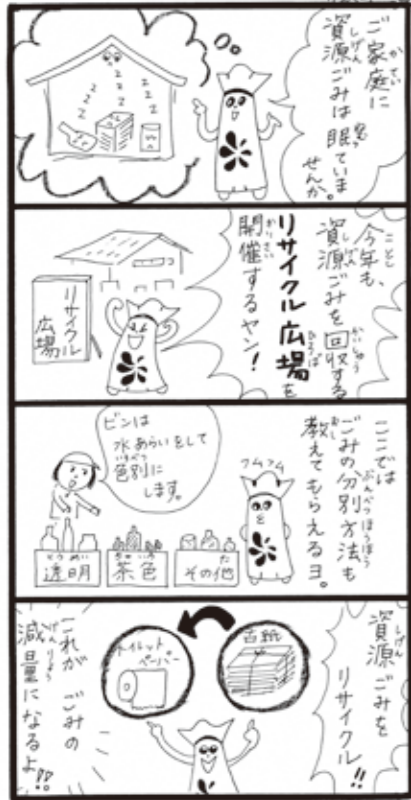 ご家庭に
資源ごみは眠っていま
せんか。
今年も、
資源ごみを回収する
リサイクル広場を
開催するヤン！
リサイクル
広場
ここでは
ごみの分別方法も
教えてもらえるヨ。
フムフム
ビンは
水あらいをして
色別に
します。
透明
茶色
その他
資源ごみを
リサイクル!!
古紙
トイレット
ペーパー
これが ごみの
減量になるよ!!